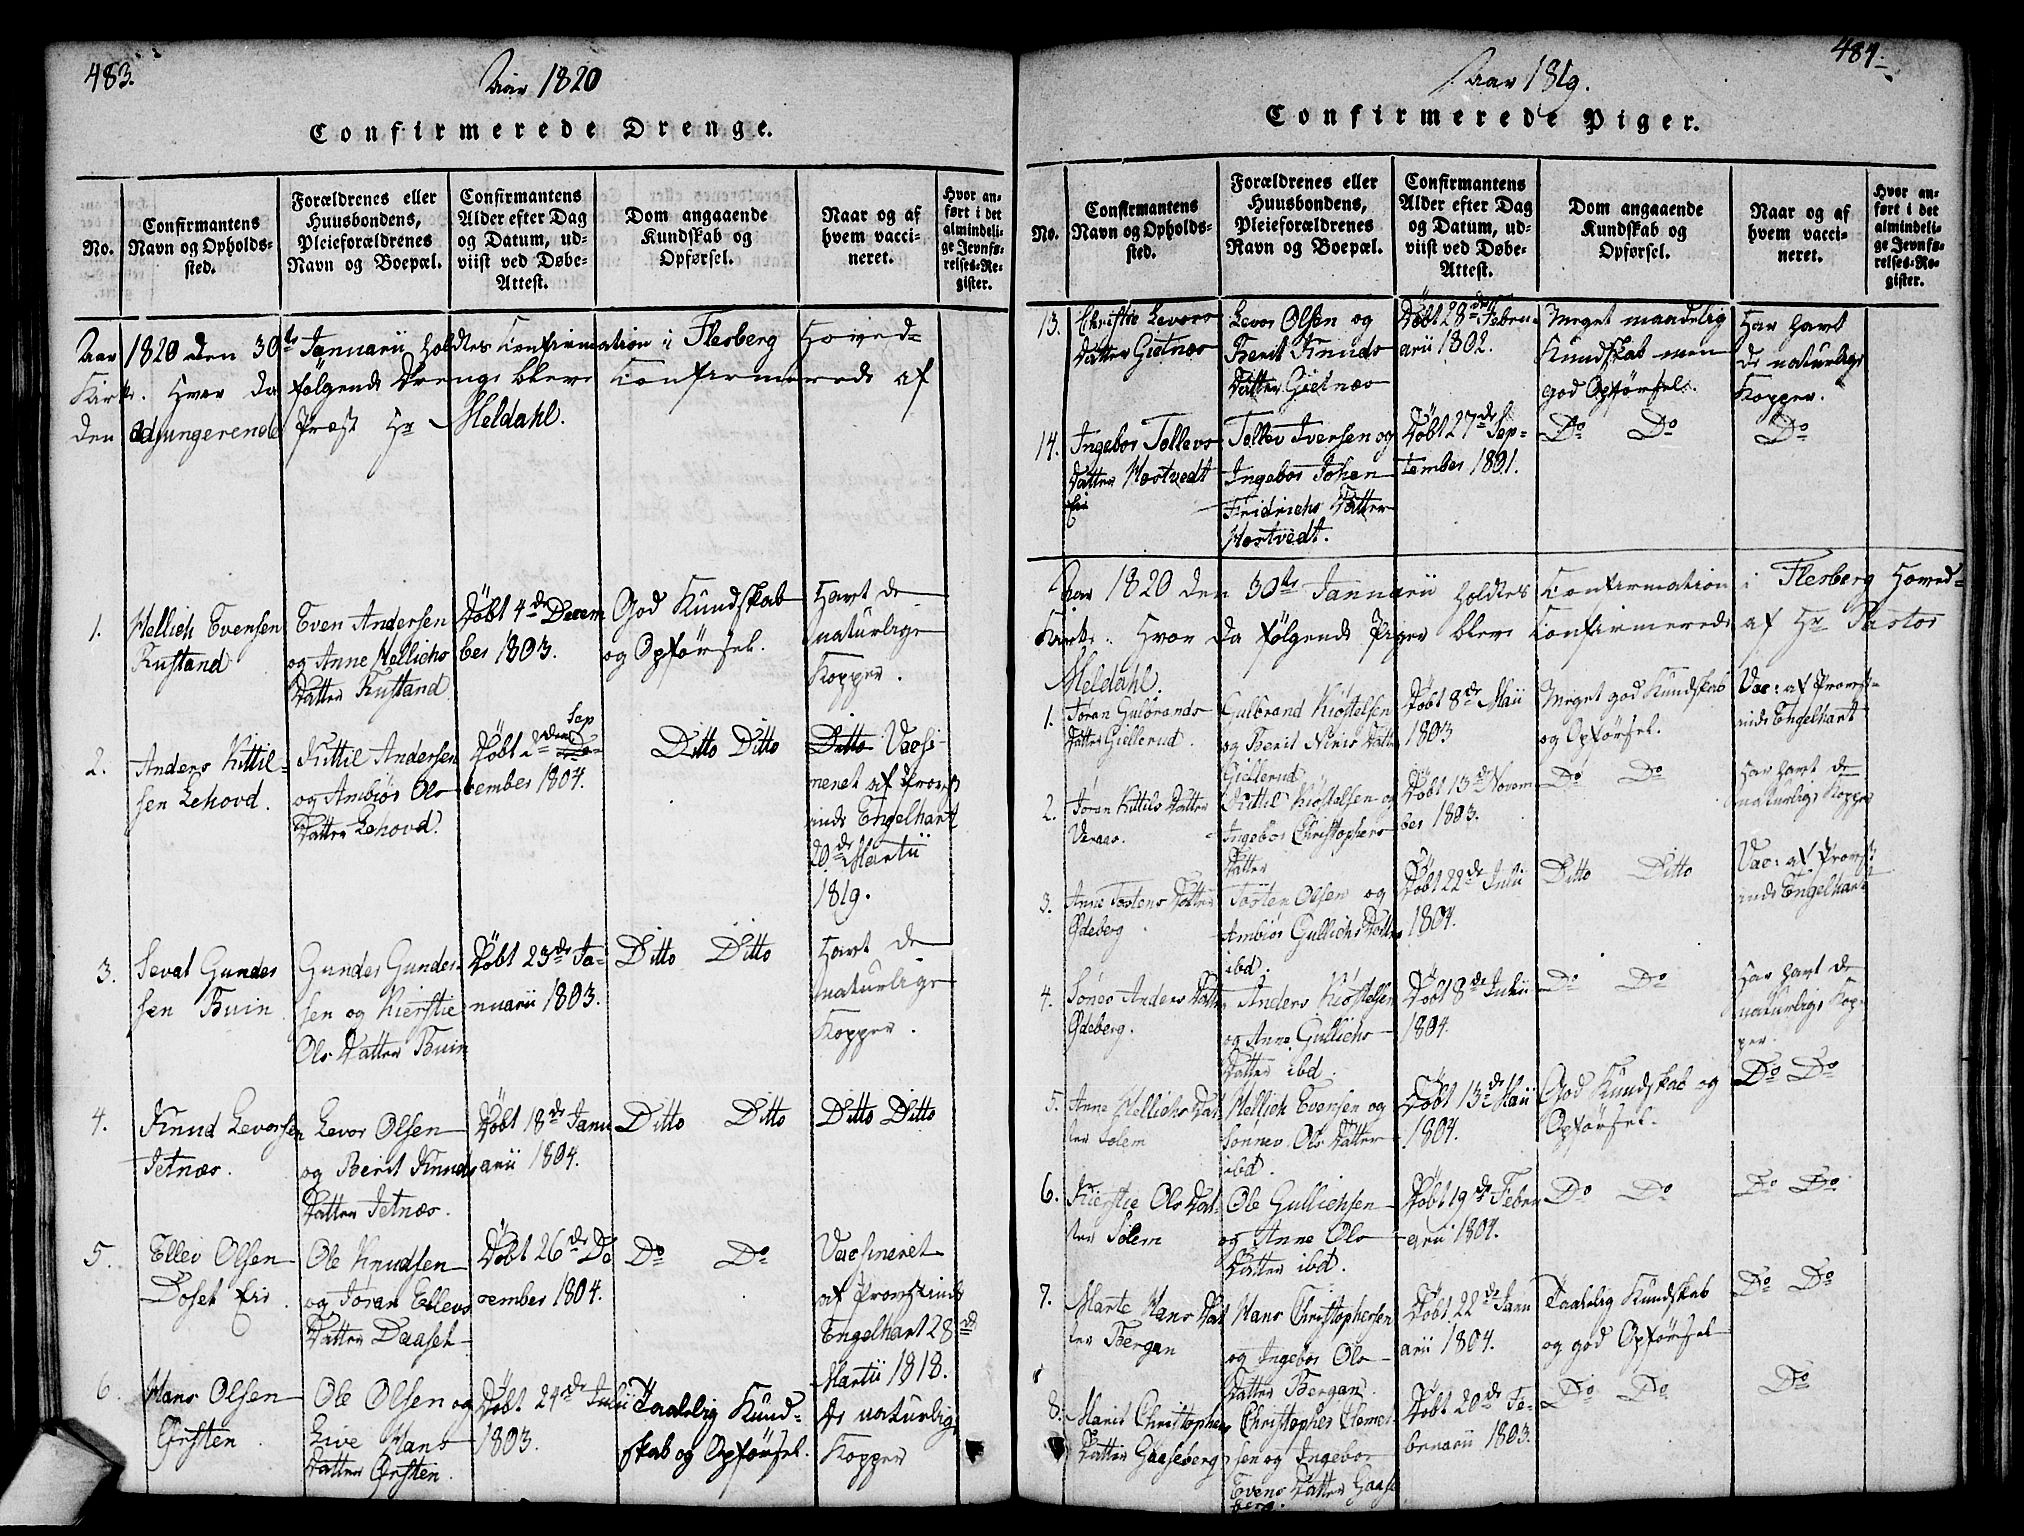 483.
Aar 1820
Confirmerede Drenge.
No.
Confirmantens
Navn og Opholds-
sted.
Forældrenes eller
Huusbondens,
Pleieforældrenes
Navn og Boepæl.
Confirmantens
Alder efter Dag
og Datum, ud-
viist ved Døbe-
Attest.
Dom angaaende
Kundskab og
Opførsel.
Naar og af
hvem vacci-
neret.
Hvor an-
ført i det
almindeli-
ge Jevnfø-
relses-Re-
gister.
Aar 1820 den 30te Januarii holdtes Confirmation i Flesberg Hoved-
Kirke. Hvor da følgende Drenge bleve Confirmerede af
den adjungerende Præst Hr Meldahl.
1.
Hellich Evensen
Rustand
Even Andersen
og Anne Hellichs
Datter Rustand
Døbt 4de Decem
ber 1803.
God Kundskab
og Opførsel.
Havt de
naturlige
Kopper.
2.
Anders Kittil-
sen Lehovd.
Kittil Andersen
og Ambiør Ols
Datter Lehovd.
Døbt 2den Sep
tember 1804.
Ditto Ditto
Ditto Vacsi-
neret af Prowst
inde Engelhart
20de Martii
1819.
3.
Sevat Gunder
sen Buin
Gunder Gunder-
sen og Kierstie
Ols Datter Buin
Døbt 23de Ja-
nuarii 1803.
Ditto Ditto
Havt de
naturlige
Kopper.
4.
Knud Levorsen
Jetnæs.
Levor Olsen
og Berit Knuds
Datter Jetnæs.
Døbt 18de Janu
arii 1804.
Ditto Ditto
Ditto Ditto
5.
Ellev Olsen
Doset Eie.
Ole Knudsen
og Jøran Ellevs
Datter Daaset
Døbt 26de De
cember 1804.
Do Do
Vacsineret
af Prowstinde
Engelhart 28de
Martii 1818.
6.
Hans Olsen
Ørsten
Ole Olsen og
Live Hans
Datter Ørsten.
Døbt 24de Julii
1803.
Taalelig Kund-
skab og Opførsel.
De naturlige
Kopper
484.
Aar 1819.
Confirmerede Piger.
No.
Confirmantens
Navn og Opholds-
sted.
Forældrenes eller
Huusbondens,
Pleieforældrenes
Navn og Boepæl.
Confirmantens
Alder efter Dag
og Datum, ud-
viist ved Døbe-
Attest.
Dom angaaende
Kundskab og
Opførsel.
Naar og af
hvem vacci-
neret.
Hvor an-
ført i det
almindeli-
ge Jevnfø-
relses-Re-
gister.
13.
Christie Levors
Datter Gietnæs
Levor Olsen og
Berit Knuds
Datter Gietnæs
Døbt 28de Febru-
arii 1802.
Meget mandelig
Kundskab men
god Opførsel.
Har havt
de naturlige
Kopper.
14.
Ingebor Tollevs
Datter Hostvedt
Eie
Tollev Iversen og
Ingebor Johan
Fridrichs Datter
Hostvedt.
Døbt 27de Sep-
tember 1801.
Do Do
Do
Aar 1820 den 30te Januarii holdtes Confirmation i Flesberg Hoved-
Kirke. Hvor da følgende Piger bleve Confirmerede af Hr Pastor
Meldahl.
1.
Jøran Gulbrands
Datter Giellerud.
Gulbrand Kiøstelsen
og Berit Niris Datter
Giellerud
Døbt 8de Maii
1803
Meget god Kundskab
og Opførsel.
Vac: af Prowst-
inde Engelhart
2.
Jøran Kittils Datter
Veraas.
Kittil Kiøstelsen og
Ingebor Christophers
Datter
Døbt 13de Novem
ber 1803.
Do Do
Har havt de
naturlige Kopper
3.
Anne Tostens Datter
Ødeberg
Tosten Olsen og
Ambiør Gullichs Datter
ibd.
Døbt 22de Julii
1804.
Ditto Ditto
Vac: af Prowst
inde Engelhart
4.
Sønev Anders Datter
Ødeberg.
Anders Kiøstelsen
og Anne Gullichs
Datter ibd.
Døbt 8de Julii
1804.
Do Do
Har havt de
naturlige Kop-
per.
5.
Anne Hellichs Dat-
ter Solem
Hellich Evensen og
Sønnev Ols Datter
ibd.
Døbt 13de Maii
1804.
God Kundskab og
Opførsel.
Do Do
6.
Kierstie Ols Dat-
ter Solem
Ole Gullichsen
og Anne Ols
Datter ibd.
Døbt 19de Febru
arii 1804.
Do Do
Do Do
7.
Marte Hans Dat
ter Bergan
Hans Christophersen
og Ingebor Ols
Datter Bergan.
Døbt 22de Janu
arii 1804.
Taalelig Kundskab
og god Opførsel
Do Do
8.
Marit Christophers
Datter Gaaseberg
Christopher Clemet
sen og Ingebor
Evens Datter Gaase
berg.
Døbt 20de Fe-
bruarii 1803.
Do Do
Do